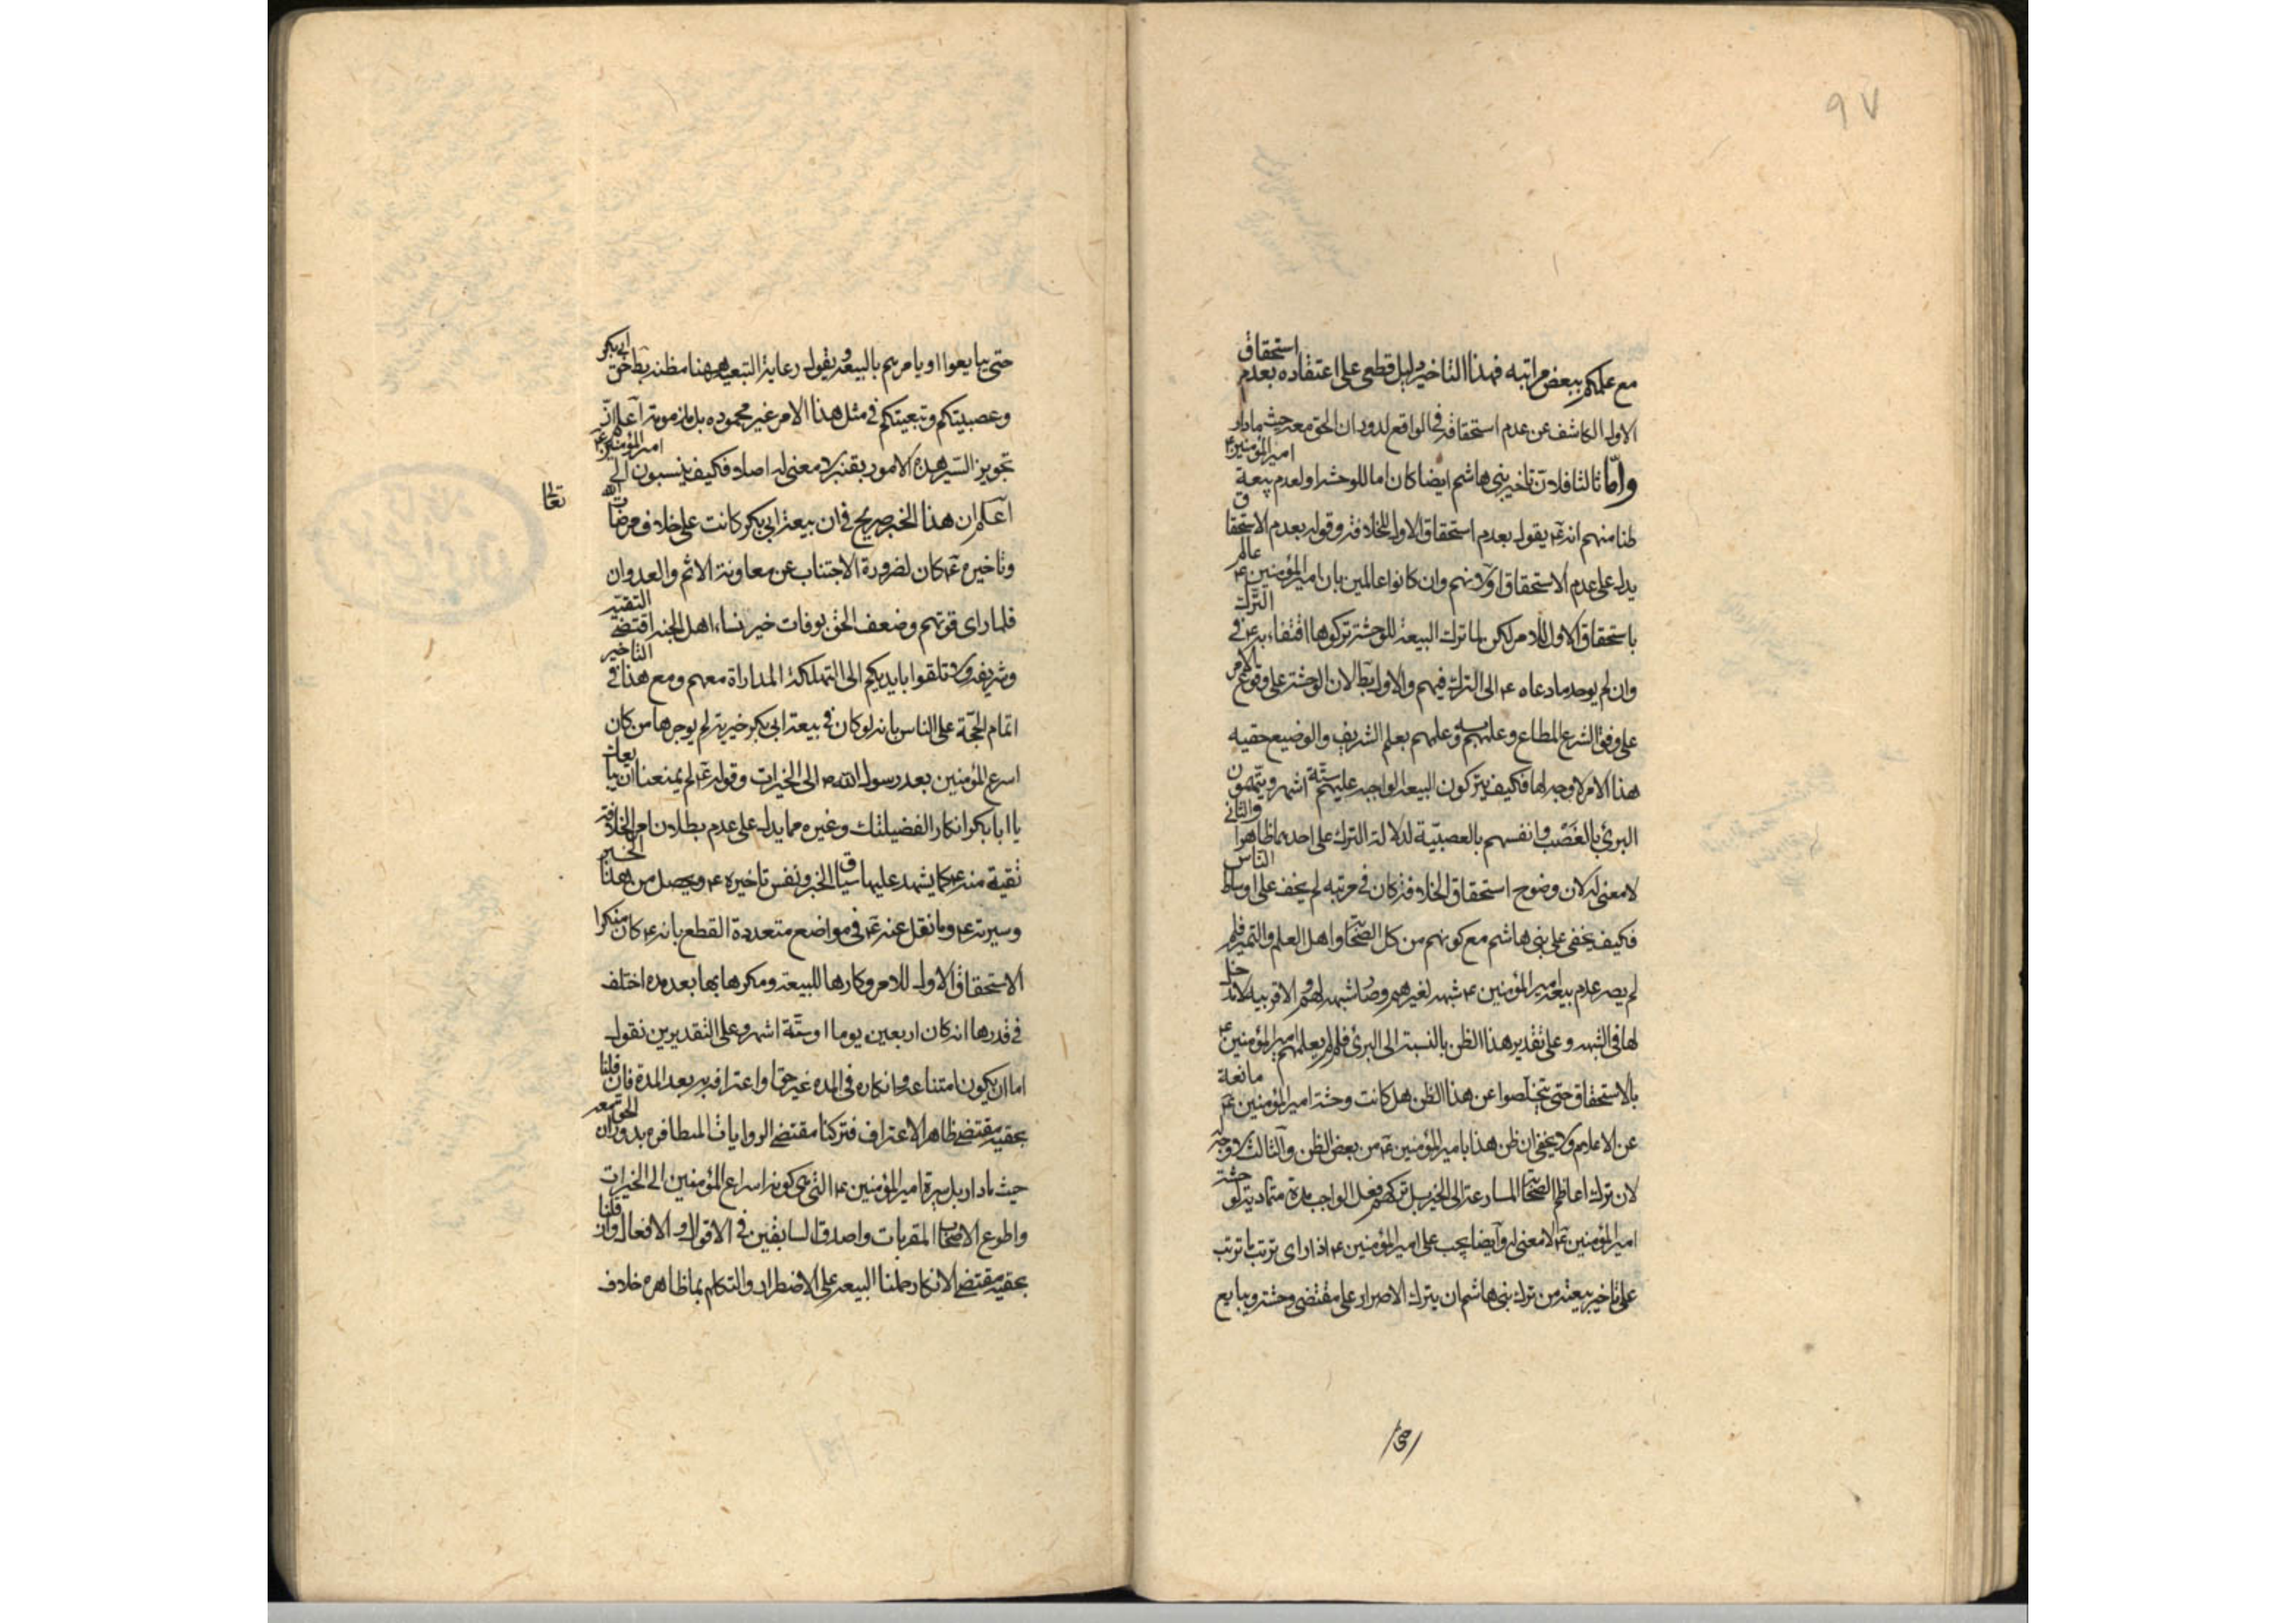 ٩٧
مع علمكم ببعض مراتبه فهذا التاخير دليل قطعي على اعتقاده بعدم استحقاق
الاول الكاشف عن عدم استحقاقه في الواقع لدوران الحق معه حيث مادار
وامّا ثالثا فلان تاخير بني هاشم ايضا كان اما للوحشة او لعدم بيعة امير المؤمنين ع
ظنا منهم انه ع يقول بعدم استحقاق الاول للخلافة وقوله بعدم الاستحقاق
يدل على عدم الاستحقاق اولانهم وان كانوا عالمين بان امير المؤمنين ع عالم
باستحقاق الاول للامر لكن لما ترك البيعة للوحشة تركوها اقتفاء به ع في الترك
وان لم يوجد مادعاه ع الى الترك فيهم والاول بط لان الوحشة على وقوع الامر
على وفق الشرع المطاع وعلمهم بعلم الشريف والوضيع حقيه
هذا الامر لاوجه لها فكيف يتركون البيعة الواجبه عليهم ستة اشهر ويتهمون
البرئ بالغصب وانفسهم بالعصبيّة لدلالة الترك على احدهما ظاهرا والثاني
لا معنى له لان وضوح استحقاق الخلافة كان في مرتبه لم يخف على اوساط الناس
فكيف يخفى على بني هاشم مع كونهم من كل الصحابة واهل العلم والتميز فلم
لم يصر عدم بيعة امير المؤمنين ع شبهه لغيرهم وصار شبهه لهم والاقربيه لا دخل
لها في الشبهه وعلى تقدير هذا الظن بالنسبة الى البرئ فلم لم يعلمهم امير المؤمنين ع
بالاستحقاق حتى يتخلصوا عن هذا الظن هل كانت وحشة امير المؤمنين ع مانعة
عن الاعلام ولا يخفى ان ظن هذا بامير المؤمنين ع من بعض الظن والثالث لا وجه له
لان ترك اعاظم الصحابة المسارعة الى الخير بل تركهم فعل الواجب مدة متمادية لوحشة
امير المؤمنين ع لا معنى له وايضا يجب على امير المؤمنين ع اذا راى ترتب ما ترتب
على تاخير بيعته من ترك بني هاشم ان يترك الاصرار على مقتضى وحشته ويبايع
حتى يبايعوا او يامرهم بالبيعة ويقول رعاية التبعيه ههنا مظنه بطلان حق ابي بكر
وعصبيتكم وتبعيتكم في مثل هذا الامر غير محموده بل مذمومة اعلم ان
تجويز السير هذه الامور بقنبر لا معنى له اصلا فكيف ينسبون الى امير المؤمنين ع
اعلم ان هذا الخبر صريح في ان بيعة ابي بكر كانت على خلاف مرضات الله
تعالى
وتاخيره ع كان لضرورة الاجتناب عن معاونة الاثم والعدوان
فلما راى قوتهم وضعف الحق بوفات خير نساء اهل الجنه اقتضى التقيه
وشريفه ولا تلقوا بايديكم الى التهلكة المداراة معهم ومع هذا في التاخير
اتمام الحجّة على الناس بانه لو كان في بيعة ابي بكر خيرية لم يوخرها من كان
اسرع المؤمنين بعد رسول الله ص الى الخيرات وقوله ع لم يمنعنا ان نبايعك
يا ابا بكر انكار الفضيلتك وغيره مما يدل على عدم بطلان امر الخلافة
تقية منه ع كما يشهد عليها سياق الخبر ونفس تاخيره ع ويحصل من هذا الخبر
وسيرته ع وما نقل عنه ع في مواضع متعددة القطع بانه ع كان منكرا
الاستحقاق الاول للامر وكارها للبيعة ومكرها بها بعد مدة اختلف
في قدرها انه كان اربعين يوما او ستّة اشهر وعلى التقديرين نقول
اما ان يكون امتناعه وانكاره في المده غير حق او اعترافه به بعد المدة فان قلنا
بحقيه مقتضى ظاهر الاعتراف فتركنا مقتضى الروايات المتظافره بدوران الحق معه
حيث مادار بل سيرة امير المؤمنين ع التي هي كونه اسراع المؤمنين الى الخيرات
واطوع الاصحاب المقربات واصدق السابقين في الاقوال والافعال وان قلنا
بحقيه مقتضى الانكار حملنا البيعه على الاضطرار والتكلم بما ظاهره خلاف